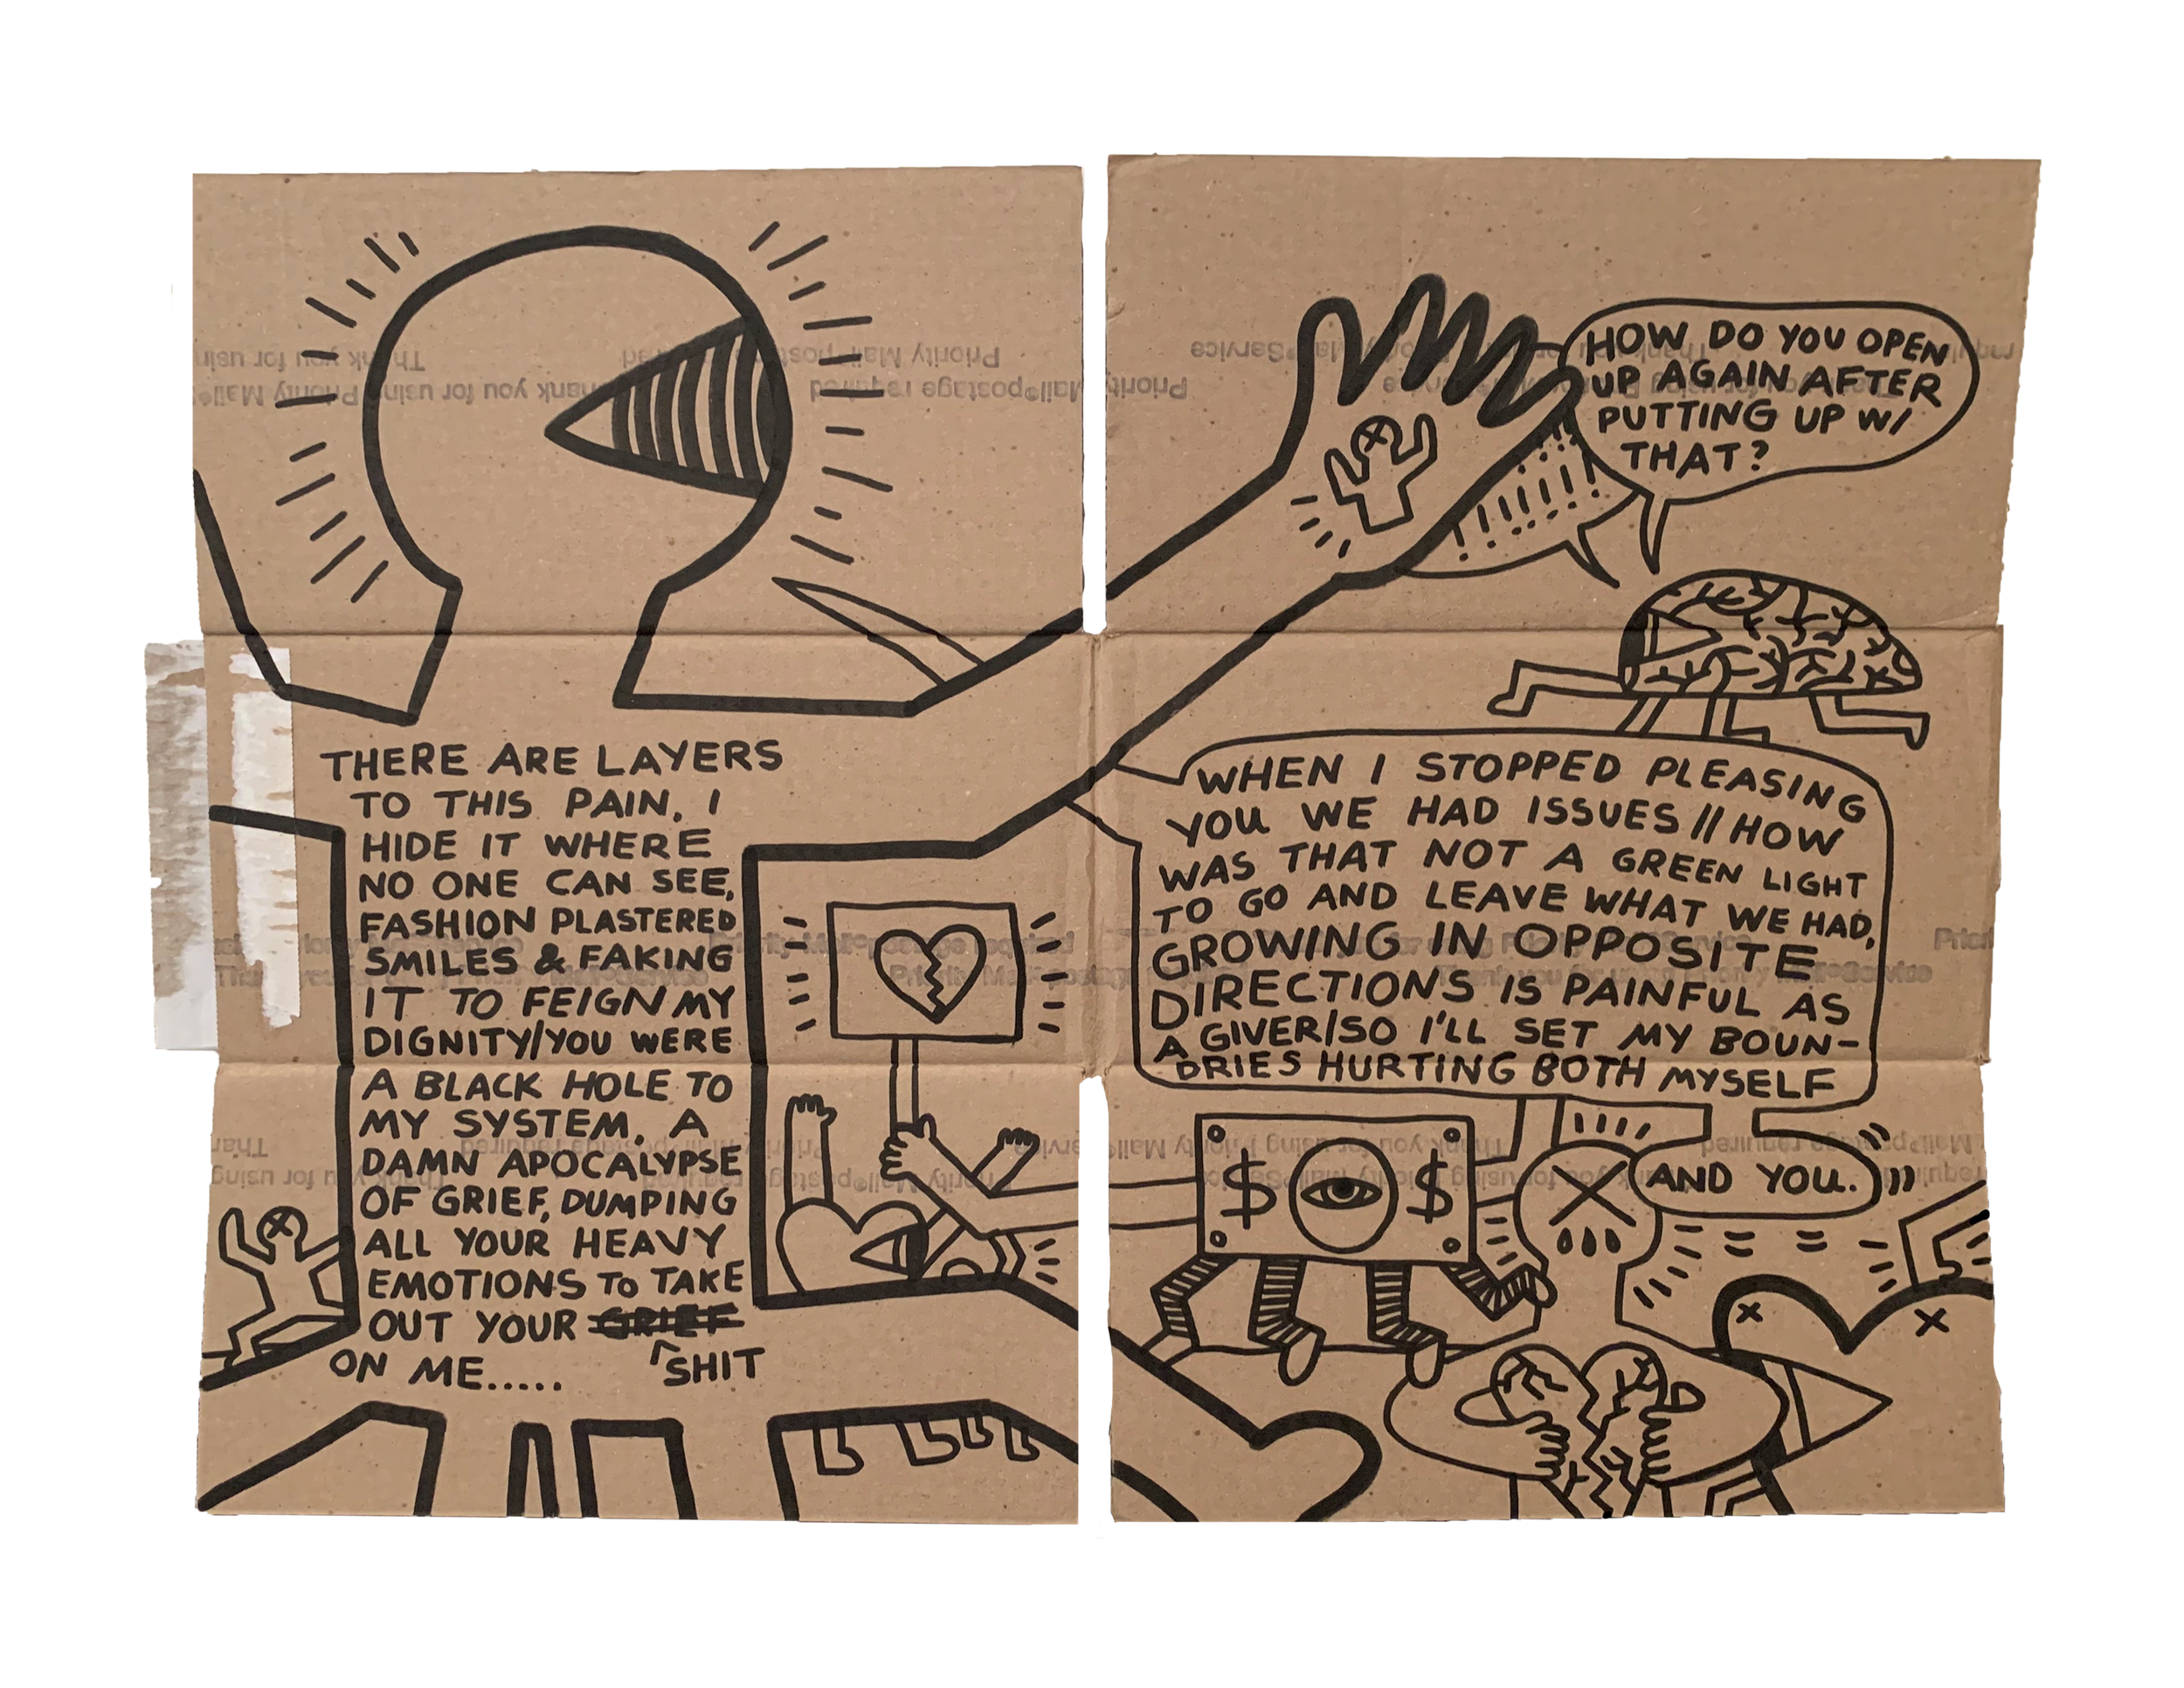 THERE ARE LAYERS
TO THIS PAIN, I
HIDE IT WHERE
NO ONE CAN SEE,
FASHION PLASTERED
SMILES & FAKING
IT TO FEIGN MY
DIGNITY/YOU WERE
A BLACK HOLE TO
MY SYSTEM, A
DAMN APOCALYPSE
OF GRIEF, DUMPING
ALL YOUR HEAVY
EMOTIONS TO TAKE
OUT YOUR GRIEF
SHIT
ON ME.....
HOW DO YOU OPEN
UP AGAIN AFTER
PUTTING UP W/
THAT?
!!!!!!
WHEN I STOPPED PLEASING
YOU WE HAD ISSUES // HOW
WAS THAT NOT A GREEN LIGHT
TO GO AND LEAVE WHAT WE HAD,
GROWING IN OPPOSITE
DIRECTIONS IS PAINFUL AS
A GIVER/SO I'LL SET MY BOUN-
DRIES HURTING BOTH MYSELF
AND YOU.
$ $
Priority Mail postage required
Thank you for using
Thank you for using Priority Mail
Mail postage required
Priority
Service
Priority Mail postage required
Mail Service
Thank you for using Priority Mail Service
Mail postage required